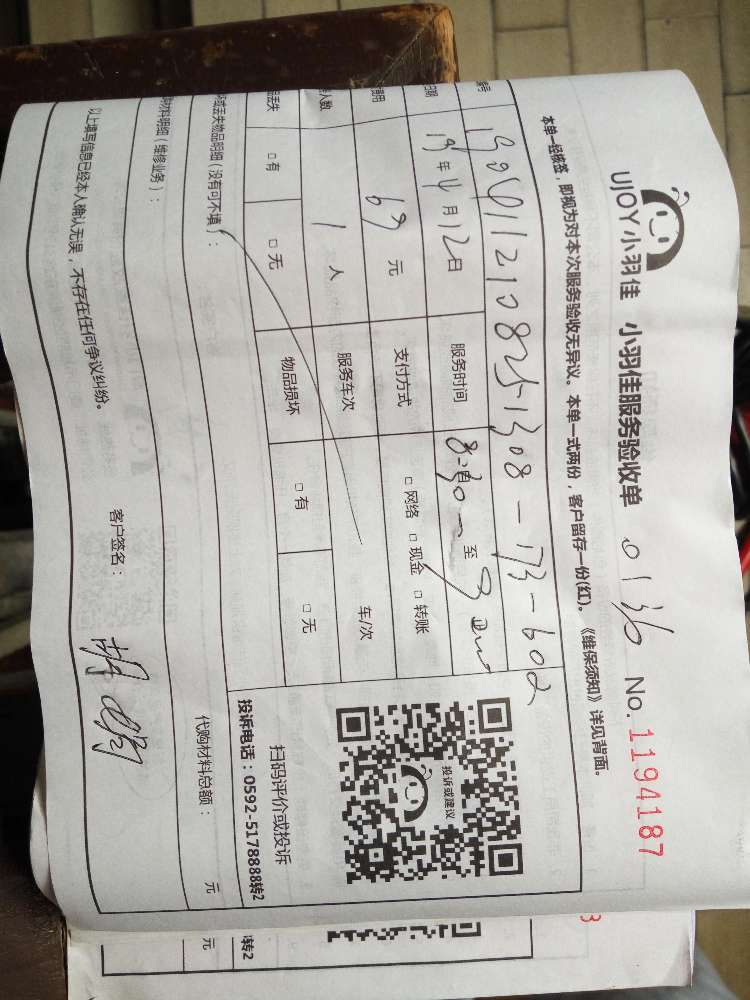 UJOY小羽佳 小羽佳服务验收单 0136 No. 1194187
本单一经核签，即视为对本次服务验收无异议。本单一式两份，客户留存一份(红)。《维保须知》详见背面。
19年4月12日 服务时间 8:30 至
69元 支付方式 □ 网络 □ 现金 □ 转账
人数 1人 服务车次 车/次
丢失 □ 有 □ 无 物品损坏 □ 有 □ 无
丢失物品明细（没有可不填）：
投诉或建议
扫码评价或投诉
投诉电话：0592-5178888转2
材料明细（维修业务）： 代购材料总额： 元
以上填写信息已经本人确认无误，不存在任何争议纠纷。 客户签名：
3
转2
元